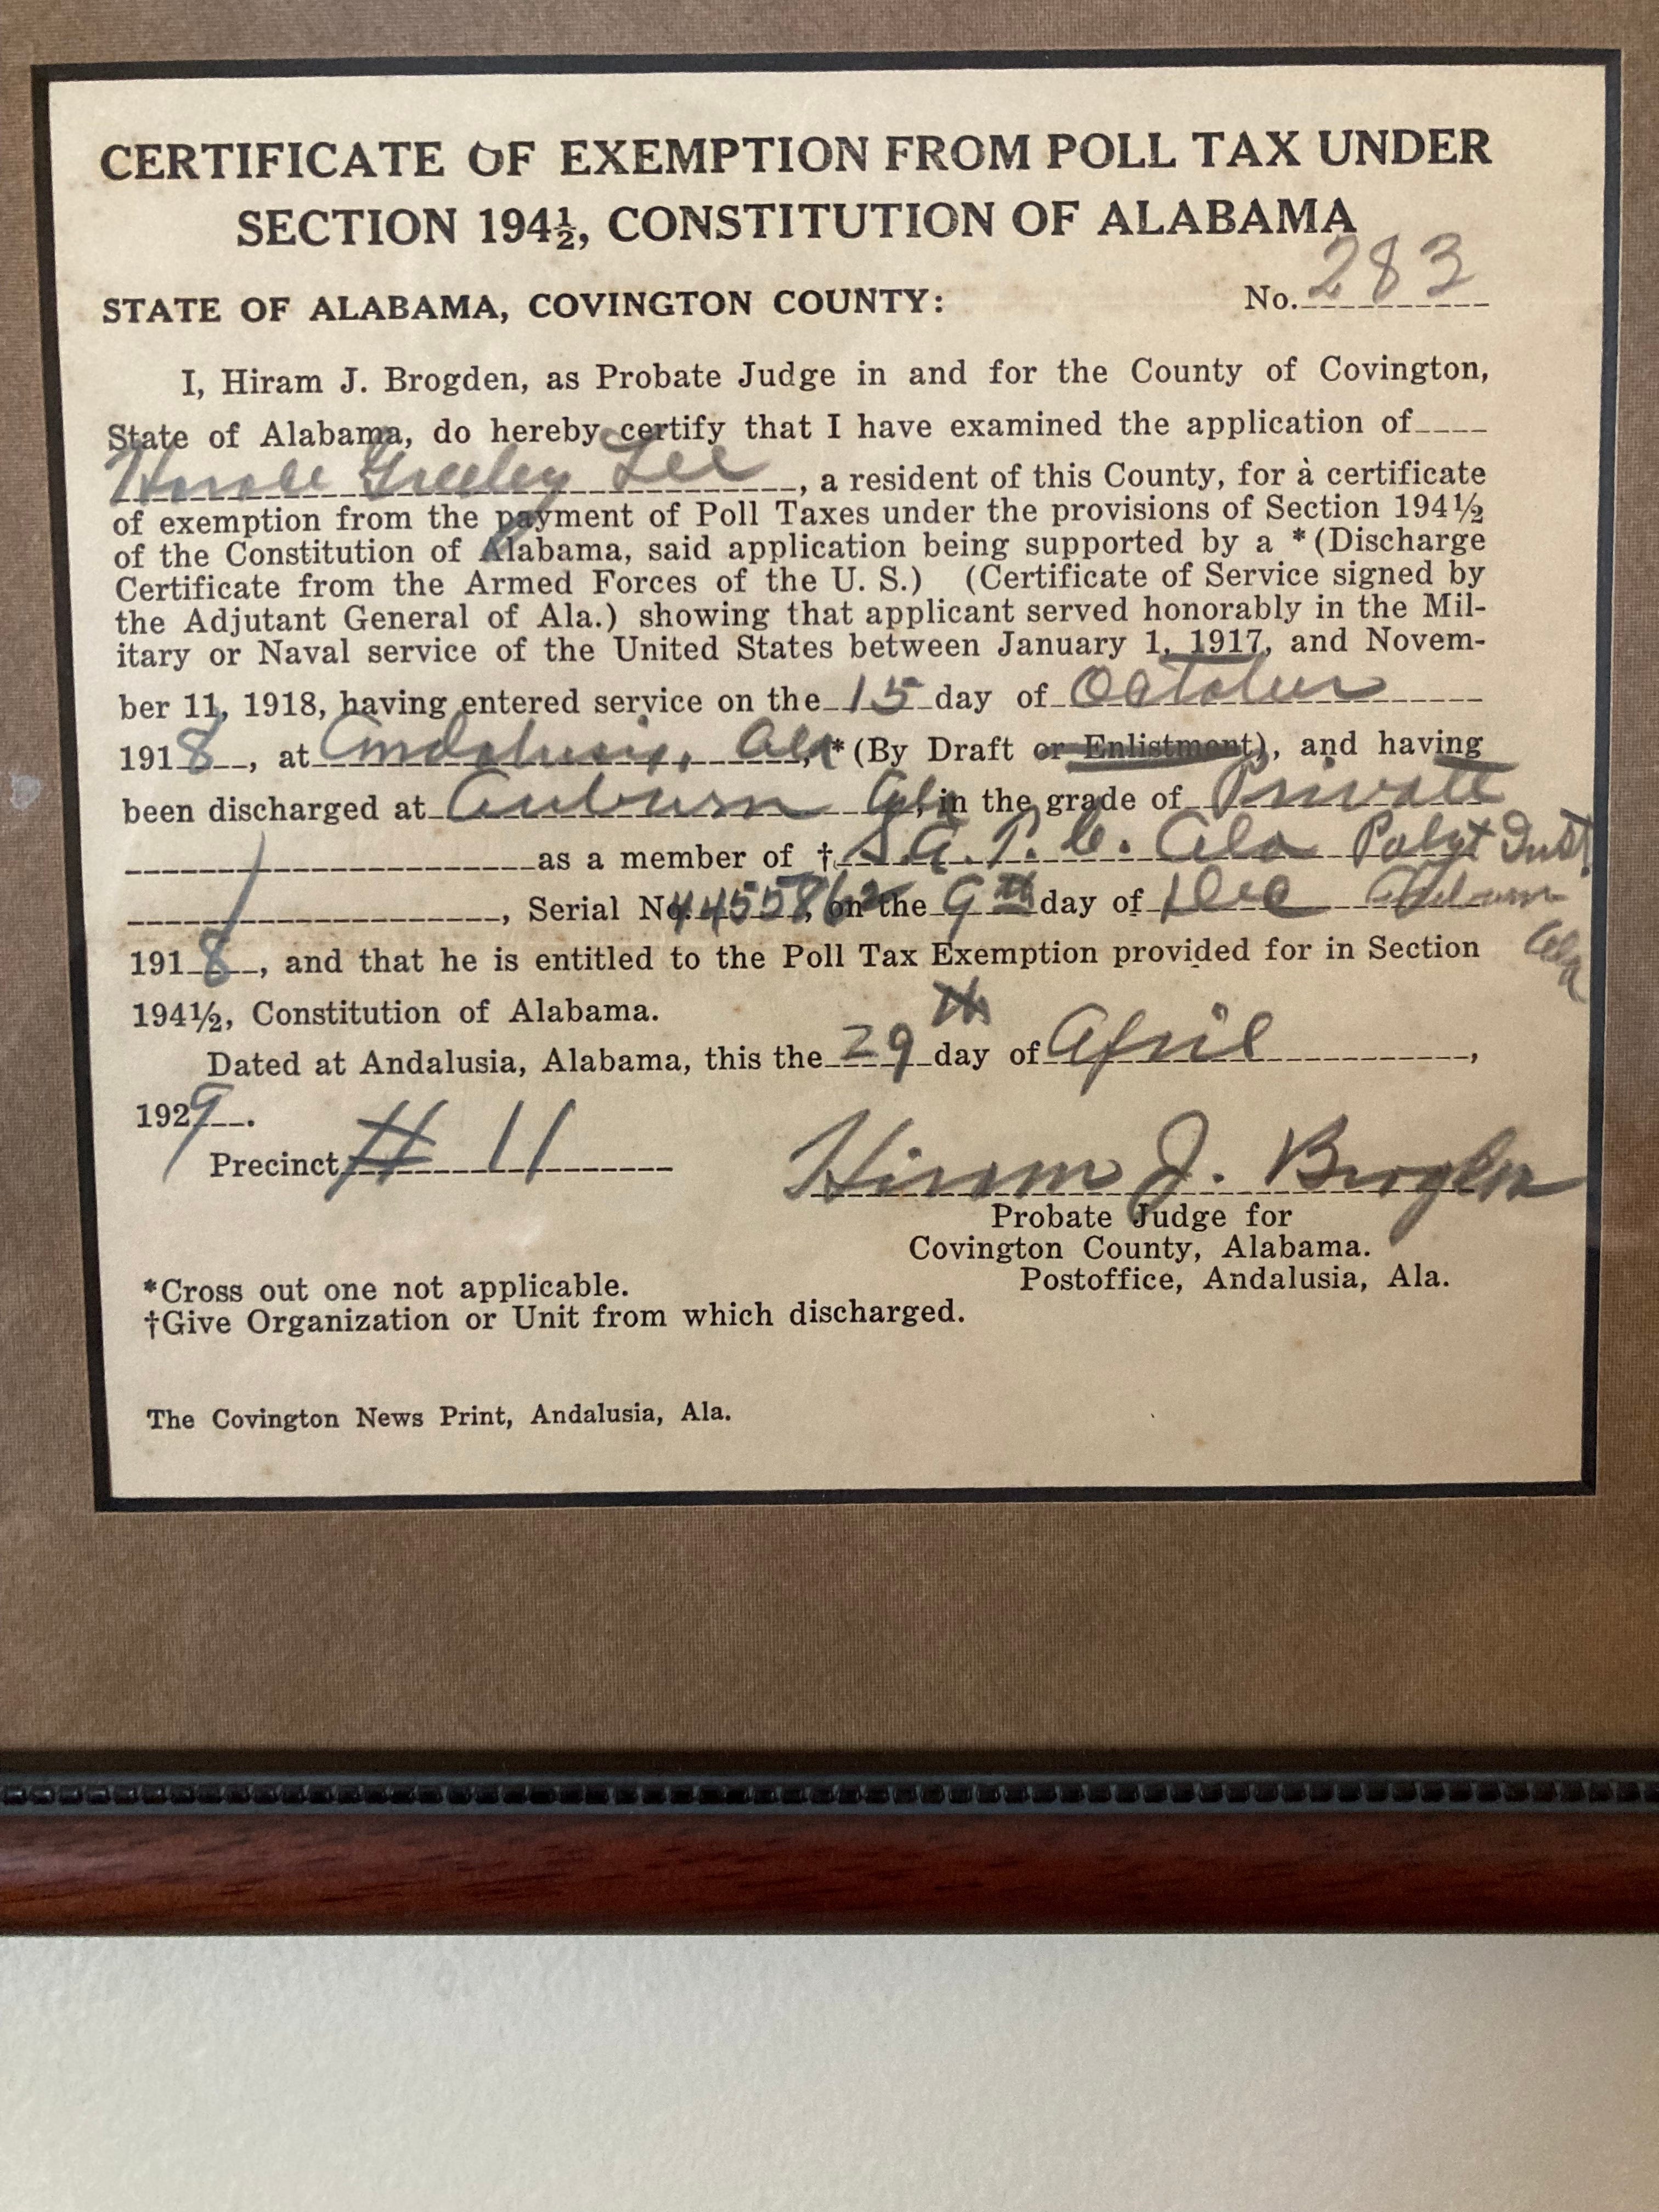 CERTIFICATE OF EXEMPTION FROM POLL TAX UNDER
SECTION 194½, CONSTITUTION OF ALABAMA
STATE OF ALABAMA, COVINGTON COUNTY: No. 283
I, Hiram J. Brogden, as Probate Judge in and for the County of Covington,
State of Alabama, do hereby certify that I have examined the application of
Greeley Lee, a resident of this County, for à certificate
of exemption from the payment of Poll Taxes under the provisions of Section 194½
of the Constitution of Alabama, said application being supported by a *(Discharge
Certificate from the Armed Forces of the U. S.) (Certificate of Service signed by
the Adjutant General of Ala.) showing that applicant served honorably in the Mil-
itary or Naval service of the United States between January 1, 1917, and Novem-
ber 11, 1918, having entered service on the 15 day of October
1918, at Andalusia, Ala *(By Draft or Enlistment), and having
been discharged at Auburn Ala, in the grade of Private
as a member of † S.A.T.C. Ala Polyt Inst.
, Serial No. 4455862, on the 9th day of Dec Auburn
Ala
1918, and that he is entitled to the Poll Tax Exemption provided for in Section
194½, Constitution of Alabama.
Dated at Andalusia, Alabama, this the 29th day of April,
1929.
Precinct # 11
Hiram J. Brogden
Probate Judge for
Covington County, Alabama.
Postoffice, Andalusia, Ala.
*Cross out one not applicable.
†Give Organization or Unit from which discharged.
The Covington News Print, Andalusia, Ala.